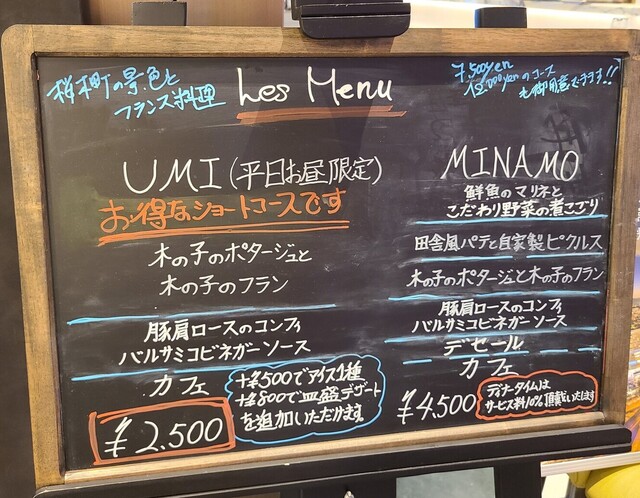 桜木町の景色と
フランス料理
Les Menu
7,500yen
12,000yenのコース
も御用意できます!!
UMI (平日お昼限定)
お得なショートコースです
木の子のポタージュと
木の子のフラン
豚肩ロースのコンフィ
バルサミコビネガーソース
カフェ
¥2.500
+¥500でアイス1種
+¥800で皿盛デザート
を追加いただけます。
MINAMO
鮮魚のマリネと
こだわり野菜の煮こごり
田舎風パテと自家製ピクルス
木の子のポタージュと木の子のフラン
豚肩ロースのコンフィ
バルサミコビネガーソース
デセール
カフェ
¥4.500
ディナータイムは
サービス料10%頂戴いたします